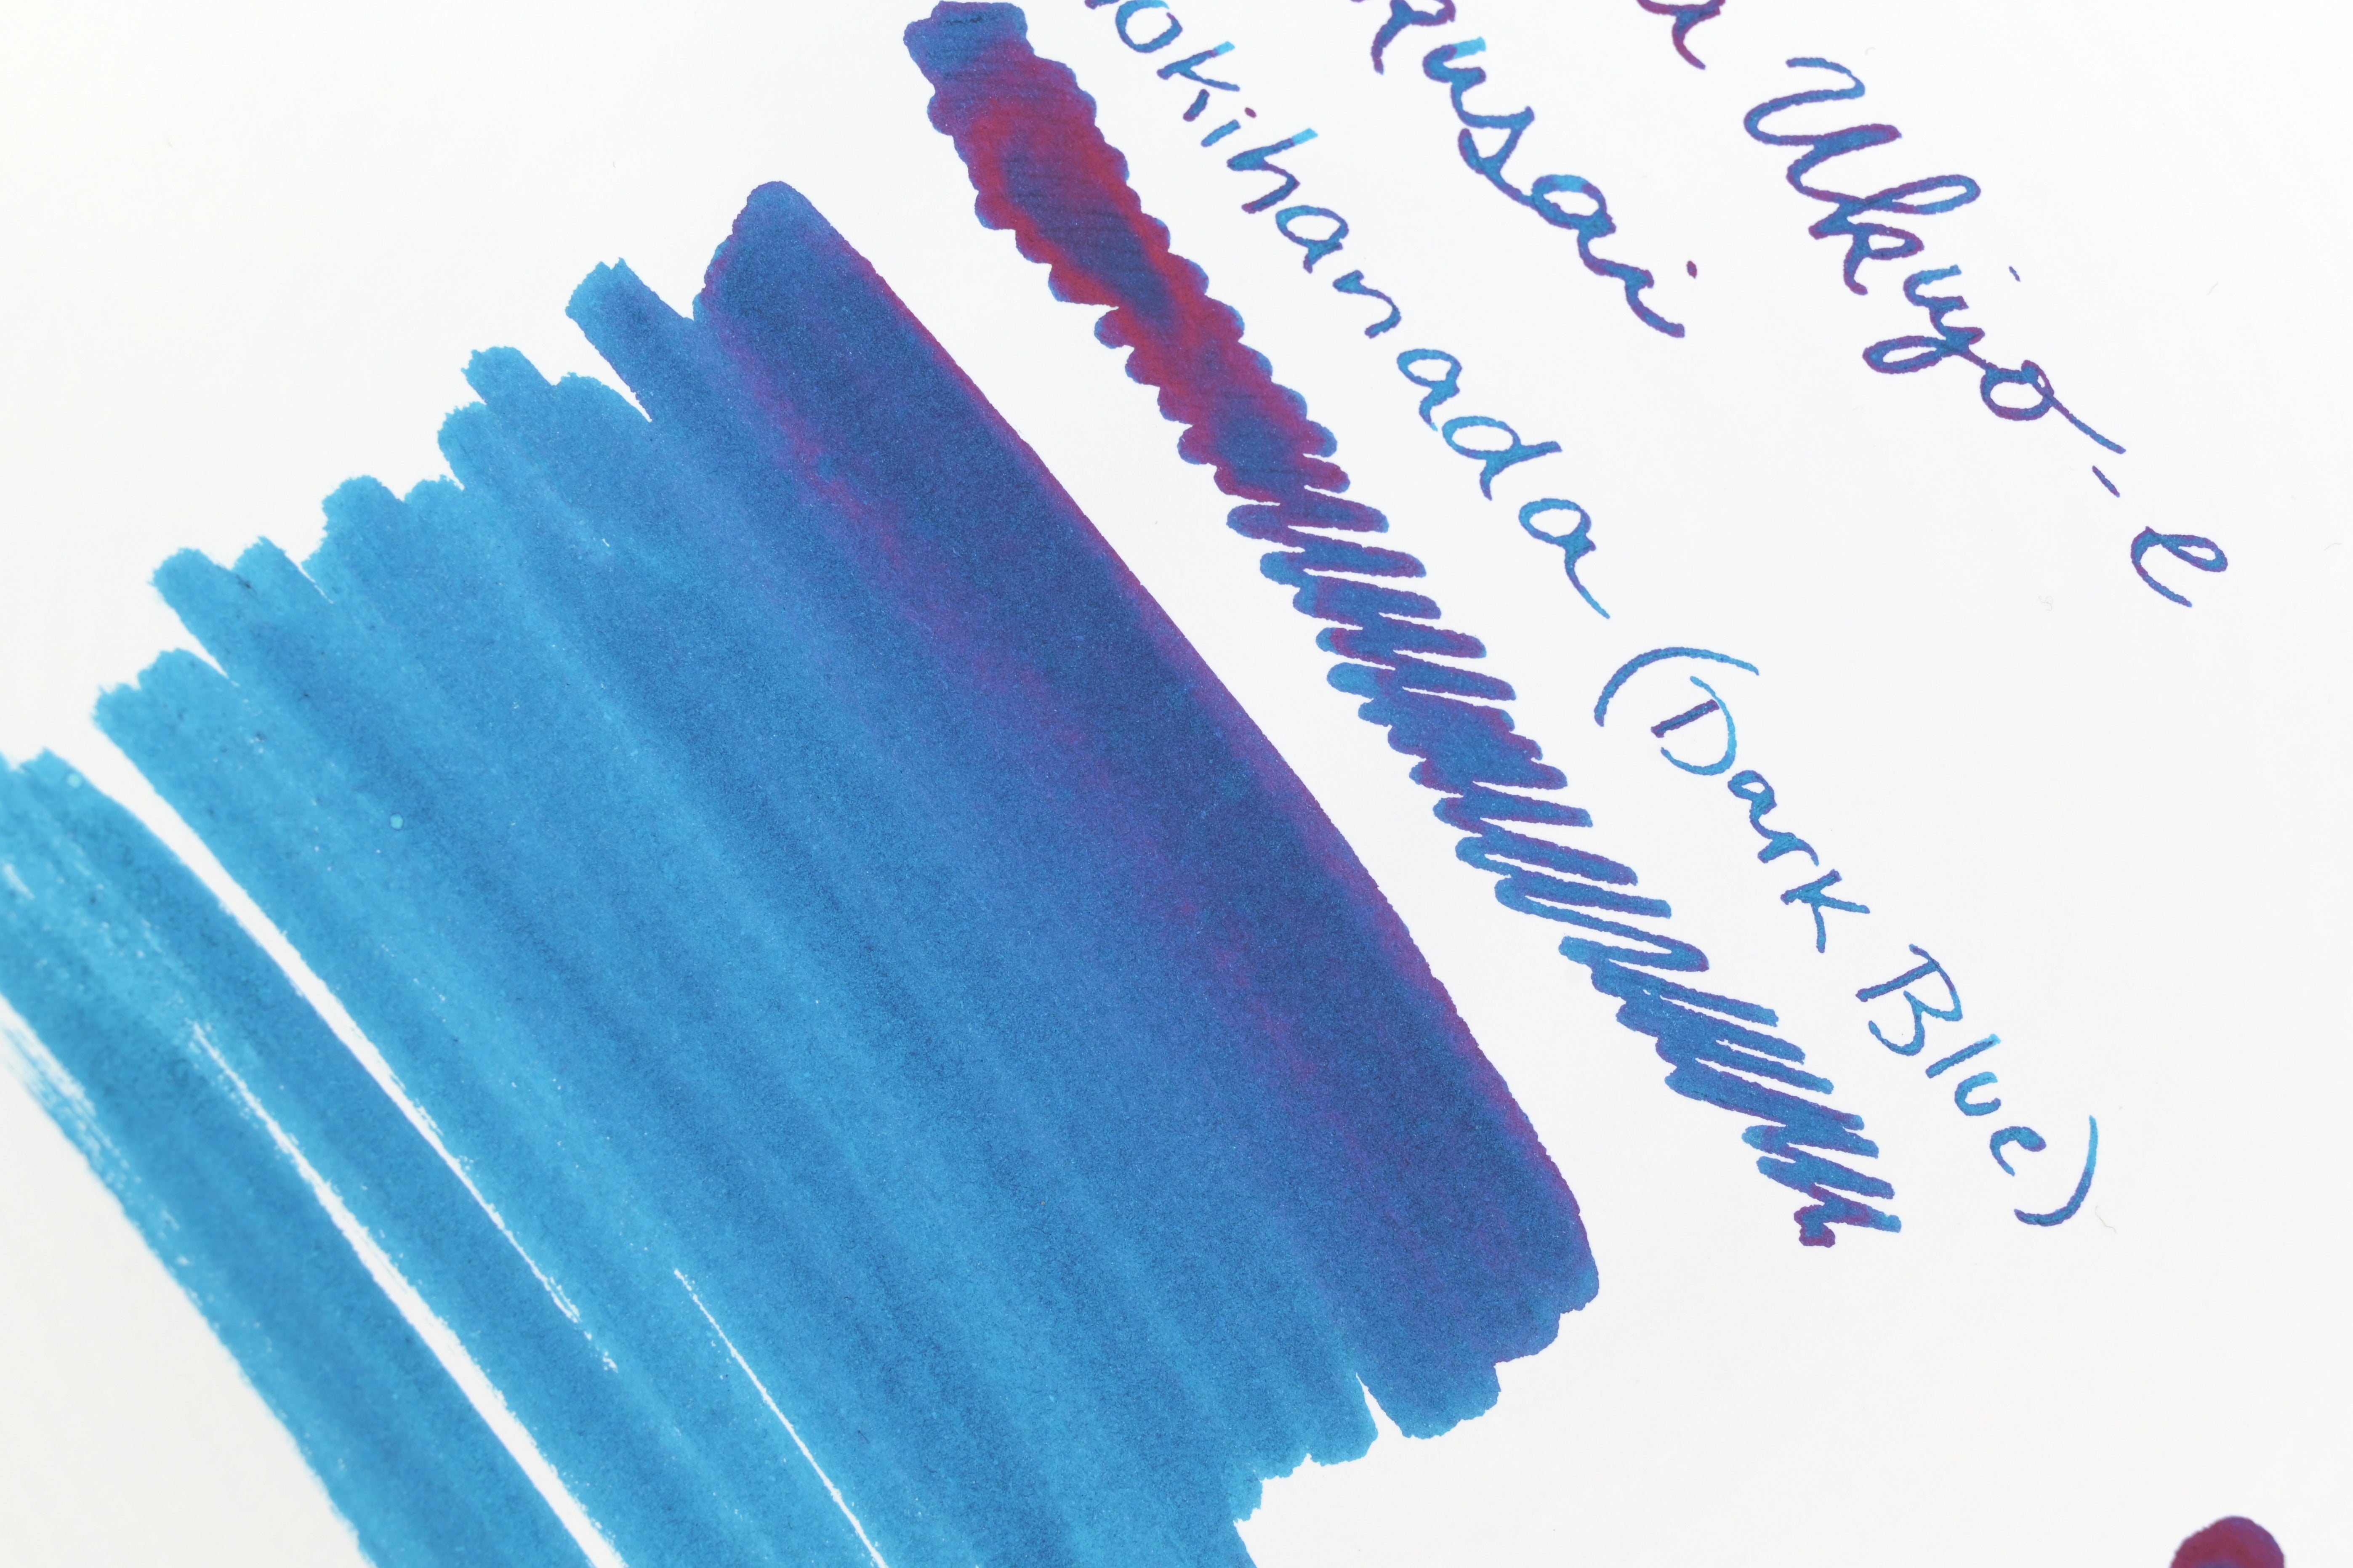 Ukiyo-e
kusai
okihanada (Dark Blue)